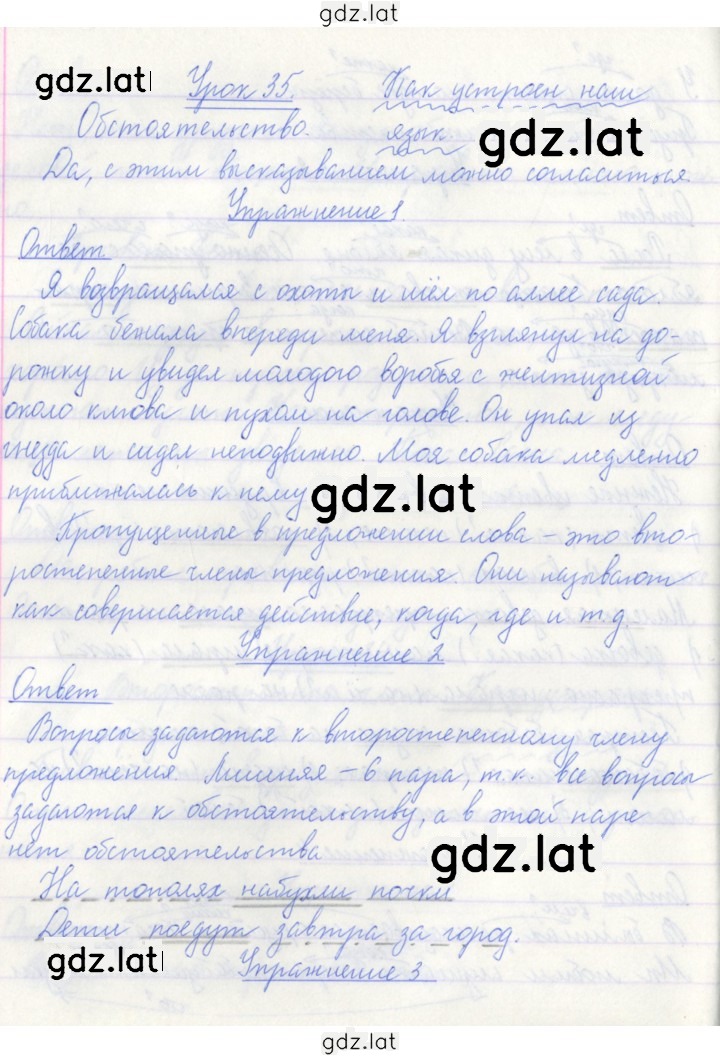 gdz.lat
gdz.lat
Урок 35. Как устроен наш
Обстоятельство. язык
gdz.lat
Да, с этим высказыванием можно согласиться.
Упражнение 1
Ответ
Я возвращался с охоты и шёл по аллее сада.
Собака бежала впереди меня. Я взглянул на до-
рожку и увидел молодого воробья с желтизной
около клюва и пухом на голове. Он упал из
гнезда и сидел неподвижно. Моя собака медленно
приближалась к нему
gdz.lat
Пропущенные в предложении слова - это вто-
ростепенные члены предложения. Они называют
как совершается действие, когда, где и т.д.
Упражнение 2
Ответ
Вопросы задаются к второстепенному члену
предложения. Лишняя - 6 пара, т.к. все вопросы
задаются к обстоятельству, а в этой паре
нет обстоятельства
gdz.lat
На тополях набухли почки
Дети поедут завтра за город.
gdz.lat
Упражнение 3
gdz.lat